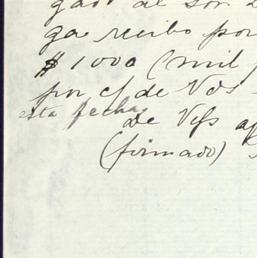 gado al Sor
ga recibo por
$1000 (mil
por c/ de Vds
esta fecha
de Vds
(firmado)